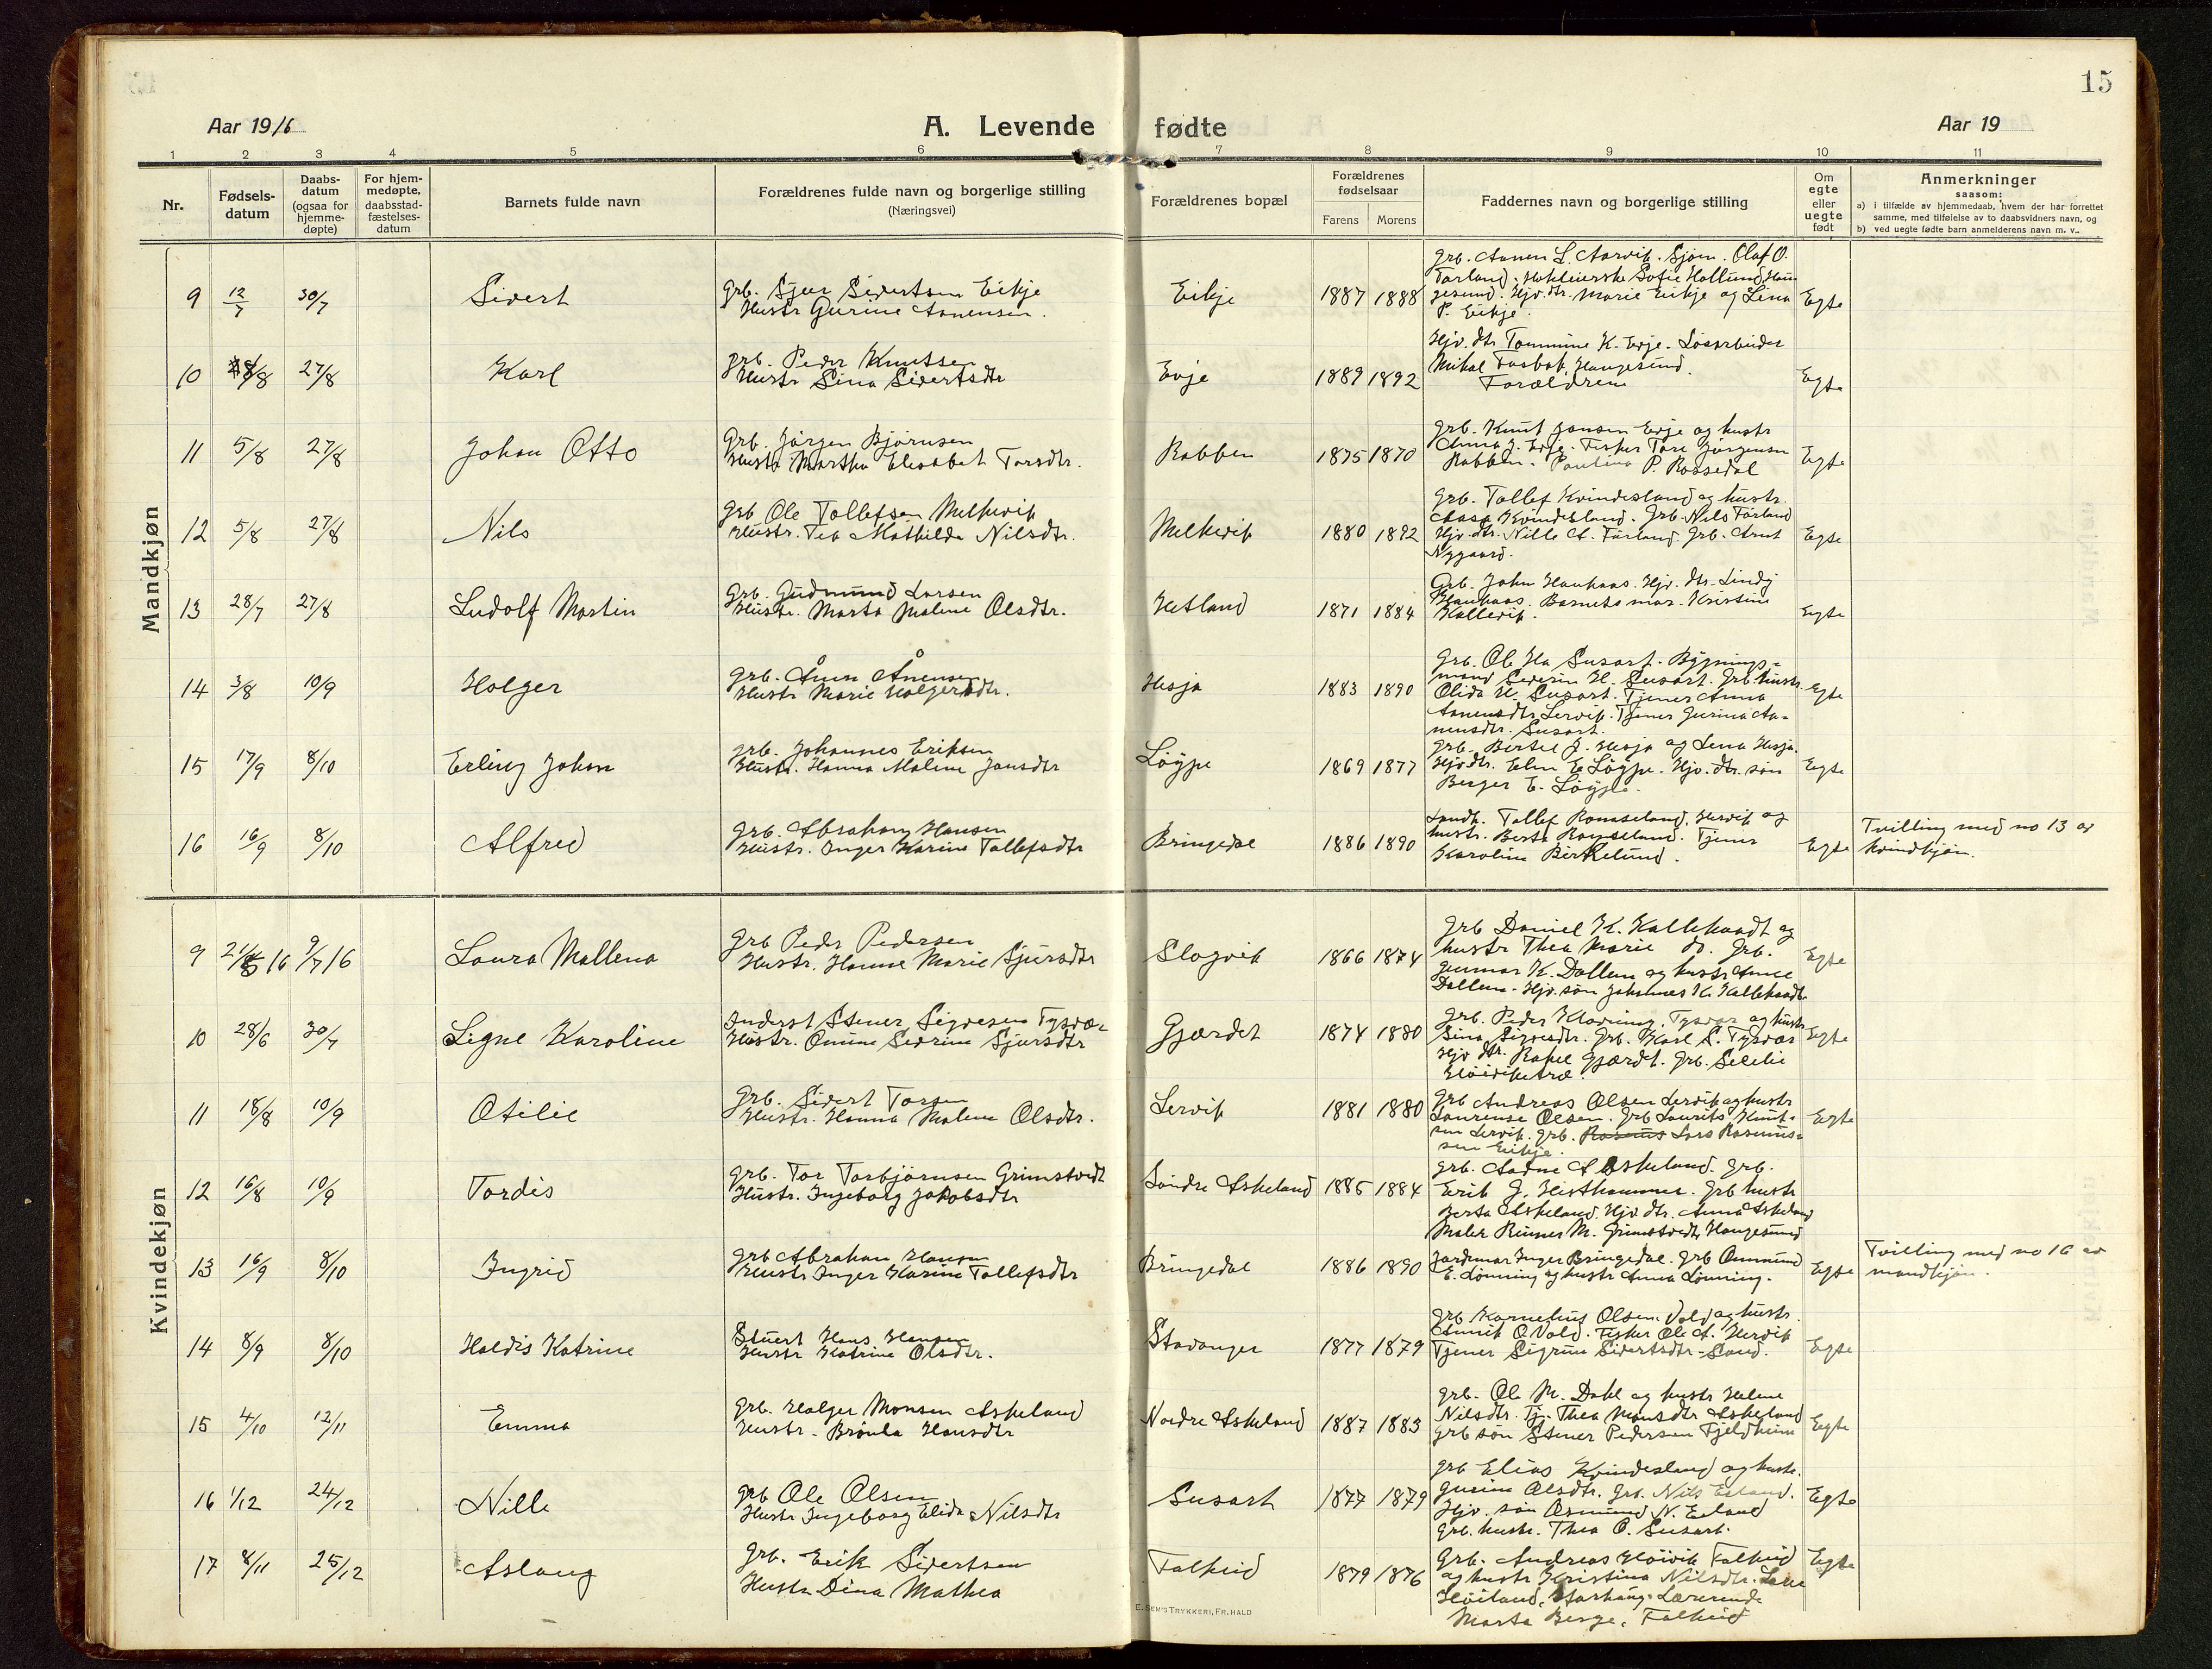 15
Aar 1916
A. Levende fødte
Aar 19
1 2 3 4 5 6 7 8 9 10 11
Nr.
Fødsels-
datum
Daabs-
datum
(ogsaa for
hjemme-
døpte)
For hjem-
medøpte,
daabsstad-
fæstelses-
datum
Barnets fulde navn
Forældrenes fulde navn og borgerlige stilling
(Næringsvei)
Forældrenes bopæl
Forældrenes
fødselsaar
Farens Morens
Faddernes navn og borgerlige stilling
Om
egte
eller
uegte
født
Anmerkninger
saasom:
a) i tilfælde av hjemmedaab, hvem der har forrettet
samme, med tilføielse av to daabsvidners navn, og
b) ved uegte fødte barn anmelderens navn m. v..
Mandkjøn
9 12/7 30/7 Sivert
Grb. Sjur Sivertsen Eikje
Hustr Gurine Aanensen.
Eikje 1887 1888
Grb. Aanen L. Aarvik. Sjøm. Olaf O.
Førland. Sofie Hallund, Hau-
gesund. Hjv. dtr. Marie Eikje og Lina
P. Eikje.
Egte
10 /8 27/8 Karl
grb. Peder Knutsen
Hustr Sina Sivertsdtr
Evje 1889 1892
Hjv. dtr Tommine K. Evje. Løsarbeider
Mikal Haugesund.
Forældrene
Egte
11 5/8 27/8 Johan Otto
Grb. Jørgen Bjørnsen
Hustr Martha Elisabet Torsdtr.
Robben 1875 1870
grb. Knut Jansen Evje og hustr
Anna J. Evje. Fisker Tore Jørgensen
Robben. Paulina P. Rossedal
Egte
12 5/8 27/8 Nils
Grb Ole Tollefsen Melkevik
Hustr. Mathilde Nilsdtr.
Melkevik 1880 1892
Grb. Tollef Kvindesland og hustr.
Aasa Kvindesland. Grb. Nils Førland
Hjv. dtr. Nille A. Førland. Grb. Arnt
Nygaard.
Egte
13 28/7 27/8 Ludolf Martin
Grb. Gudmund Larsen
Hustr. Marta Malene Olsdtr.
Hetland 1871 1884
Grb. John Haukaas. Hjv. dtr. Lindy
Haukaas. Barnets mor. Kristine
Kallevik.
Egte
14 3/8 10/9 Holger
grb. Ånen Ånensen
Hustr Marie Holgersdtr.
Hesja 1883 1890
Grb. Ole Ha Susort. Bygnings-
mand Severin H. Susort. Grb. hustr.
Olida H. Susort. Tjener Anna
Aanensdtr Lervik. Tjener Gurina Aa-
nensdtr. Susort.
Egte
15 17/9 8/10 Erling Johan
grb. Johannes Eriksen
Hustr. Hanna Malene Jonsdtr
Løype 1869 1877
grb. Bertel J. Hesja og Lena Hesja.
Hjv dtr. Elen E Løype. Hjv. søn
Berger E. Løype.
Egte
16 16/9 8/10 Alfred
grb. Abraham Hansen
Hustr. Inger Karine Tollefsdtr
Bringedal 1886 1890
Landh. Tollef Hervik og
hustr. Berta Tjener
Karoline Birkelund.
Egte
Tvilling med no 13 av
kvindkjøn.
Kvindekjøn
9 21/5 16 9/7 16 Laura Mallena
grb Peder Pedersen
Hustr. Hanne Marie Sjursdtr
Slogvik 1866 1874
grb Daniel K. Kallekaadt og
hustr Thea Marie do. Grb.
Gunnar K. Dallen og hustr Anne
Dallen. Hjv. søn Johannes K. Kallekaadt
Egte
10 28/6 30/7 Signe Karoline
Inderst Stener Sigvesen Tysvær
Hustr. Omine Sevrine Sjursdtr
Gjærdet 1874 1880
grb. Peder Kløvning, Tysvær og hustr
Sina Sigvesdtr. Grb. Karl S. Tysvær
Hjv dtr. Rakel Gjærdet. Grb. Selelie
Egte
11 18/8 10/9 Otilie
Grb. Sivert Torsen
Hustr. Hanna Malene Olsdtr.
Lervik 1881 1880
grb Andreas Olsen Lervik og hustr
Laurense Olsen. Grb Laurits Knut-
sen Lervik. Grb. Rasmus Lars Rasmus-
sen Eikje.
Egte
12 16/8 10/9 Tordis
grb. Tor Torbjørnsen Grimstvedt
Hustr. Ingeborg Jakobsdtr
Søndre Askeland 1885 1884
grb. Aadne A Askeland. Grb.
Erik J. Hesthammer. Grb hustr
Berta Askeland. Hjv. dtr. Anna Askeland
Maler M. Grimstvedt, Haugesund
13 16/9 8/10 Ingrid
grb Abraham Hansen
Hustr Inger Karine Tollefsdtr
Bringedal 1886 1890
Jordmor Inger Bringedal. Grb Ommund
E. Lønning og hustr Anna Lønning.
Egte
Tvilling med no 16 av
mandkjøn.
14 8/9 8/10 Haldis Katrine
Stuert Hans Hansen
Hustr Katrine Olsdtr.
Stavanger 1877 1879
grb Kornelius Olsen Vold og hustr.
O. Vold. Fisker Ole A. Hervik
Tjener Sigrun Sivertsdtr - Sand.
Egte
15 4/10 12/11 Emma
grb. Holger Monsen Askeland
Hustr. Brønla Hansdtr
Nordre Askeland 1887 1883
grb. Ole M. Dahl og hustr Helene
Nilsdtr. Tj. Thea Monsdtr Askeland
grb søn Stener Pedersen Fjeldheim
Egte
16 1/12 24/12 Nille
grb Ole Olsen
Hustr Ingeborg Elida Nilsdtr
Susort 1877 1879
grb Elias Kvindesland og hustr.
Gurine Olsdtr. Grb. Nils Eeland.
Hjv. søn Osmund N. Eeland
Grb. hustr. Thea O. Susort.
Egte
17 8/11 25/12 Aslaug
Grb. Erik Sivertsen
Hustr Dina Mathea
Falkeid 1879 1876
Grb. Andreas Høivik Falkeid
og hustr Kristina Nilsdtr.
Høiland, Lærerinde
Marta Berge, Falkeid
Egte
E. SEM'S TRYKKERI, FR.HALD